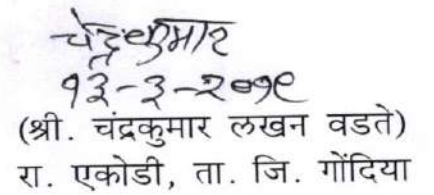 चंद्रकुमार
१३-३-२०१९
(श्री. चंद्रकुमार लखन वडते)
रा. एकोडी, ता. जि. गोंदिया